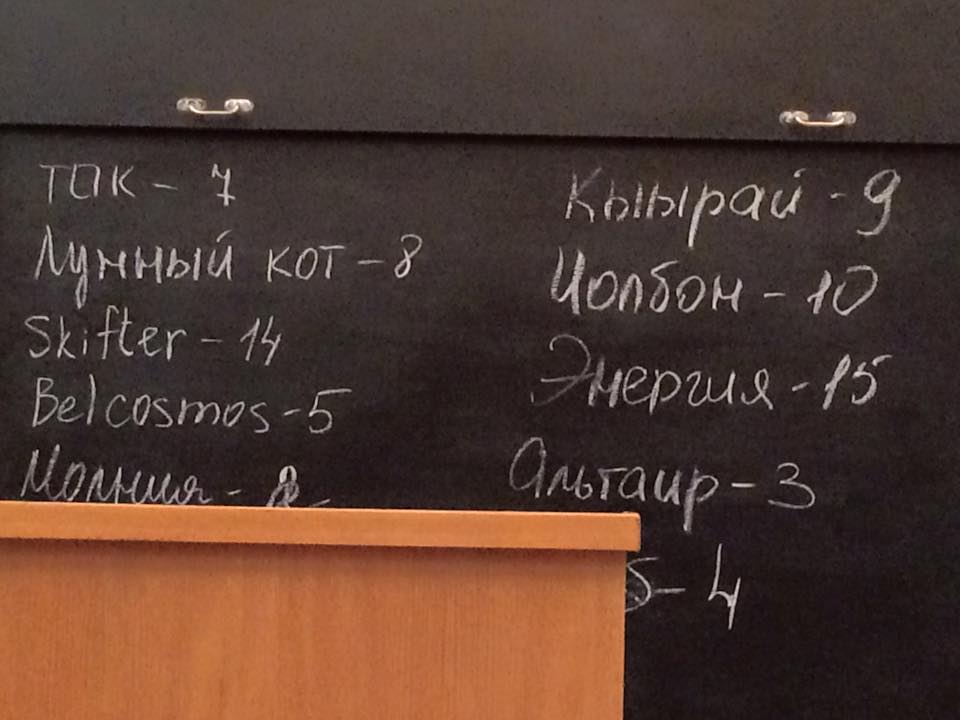 ТОК - 7
Лунный кот - 8
Skifter - 14
Belcosmos - 5
Молния -
Кыырай - 9
Чолбон - 10
Энергия - 15
Альтаир - 3
- 4